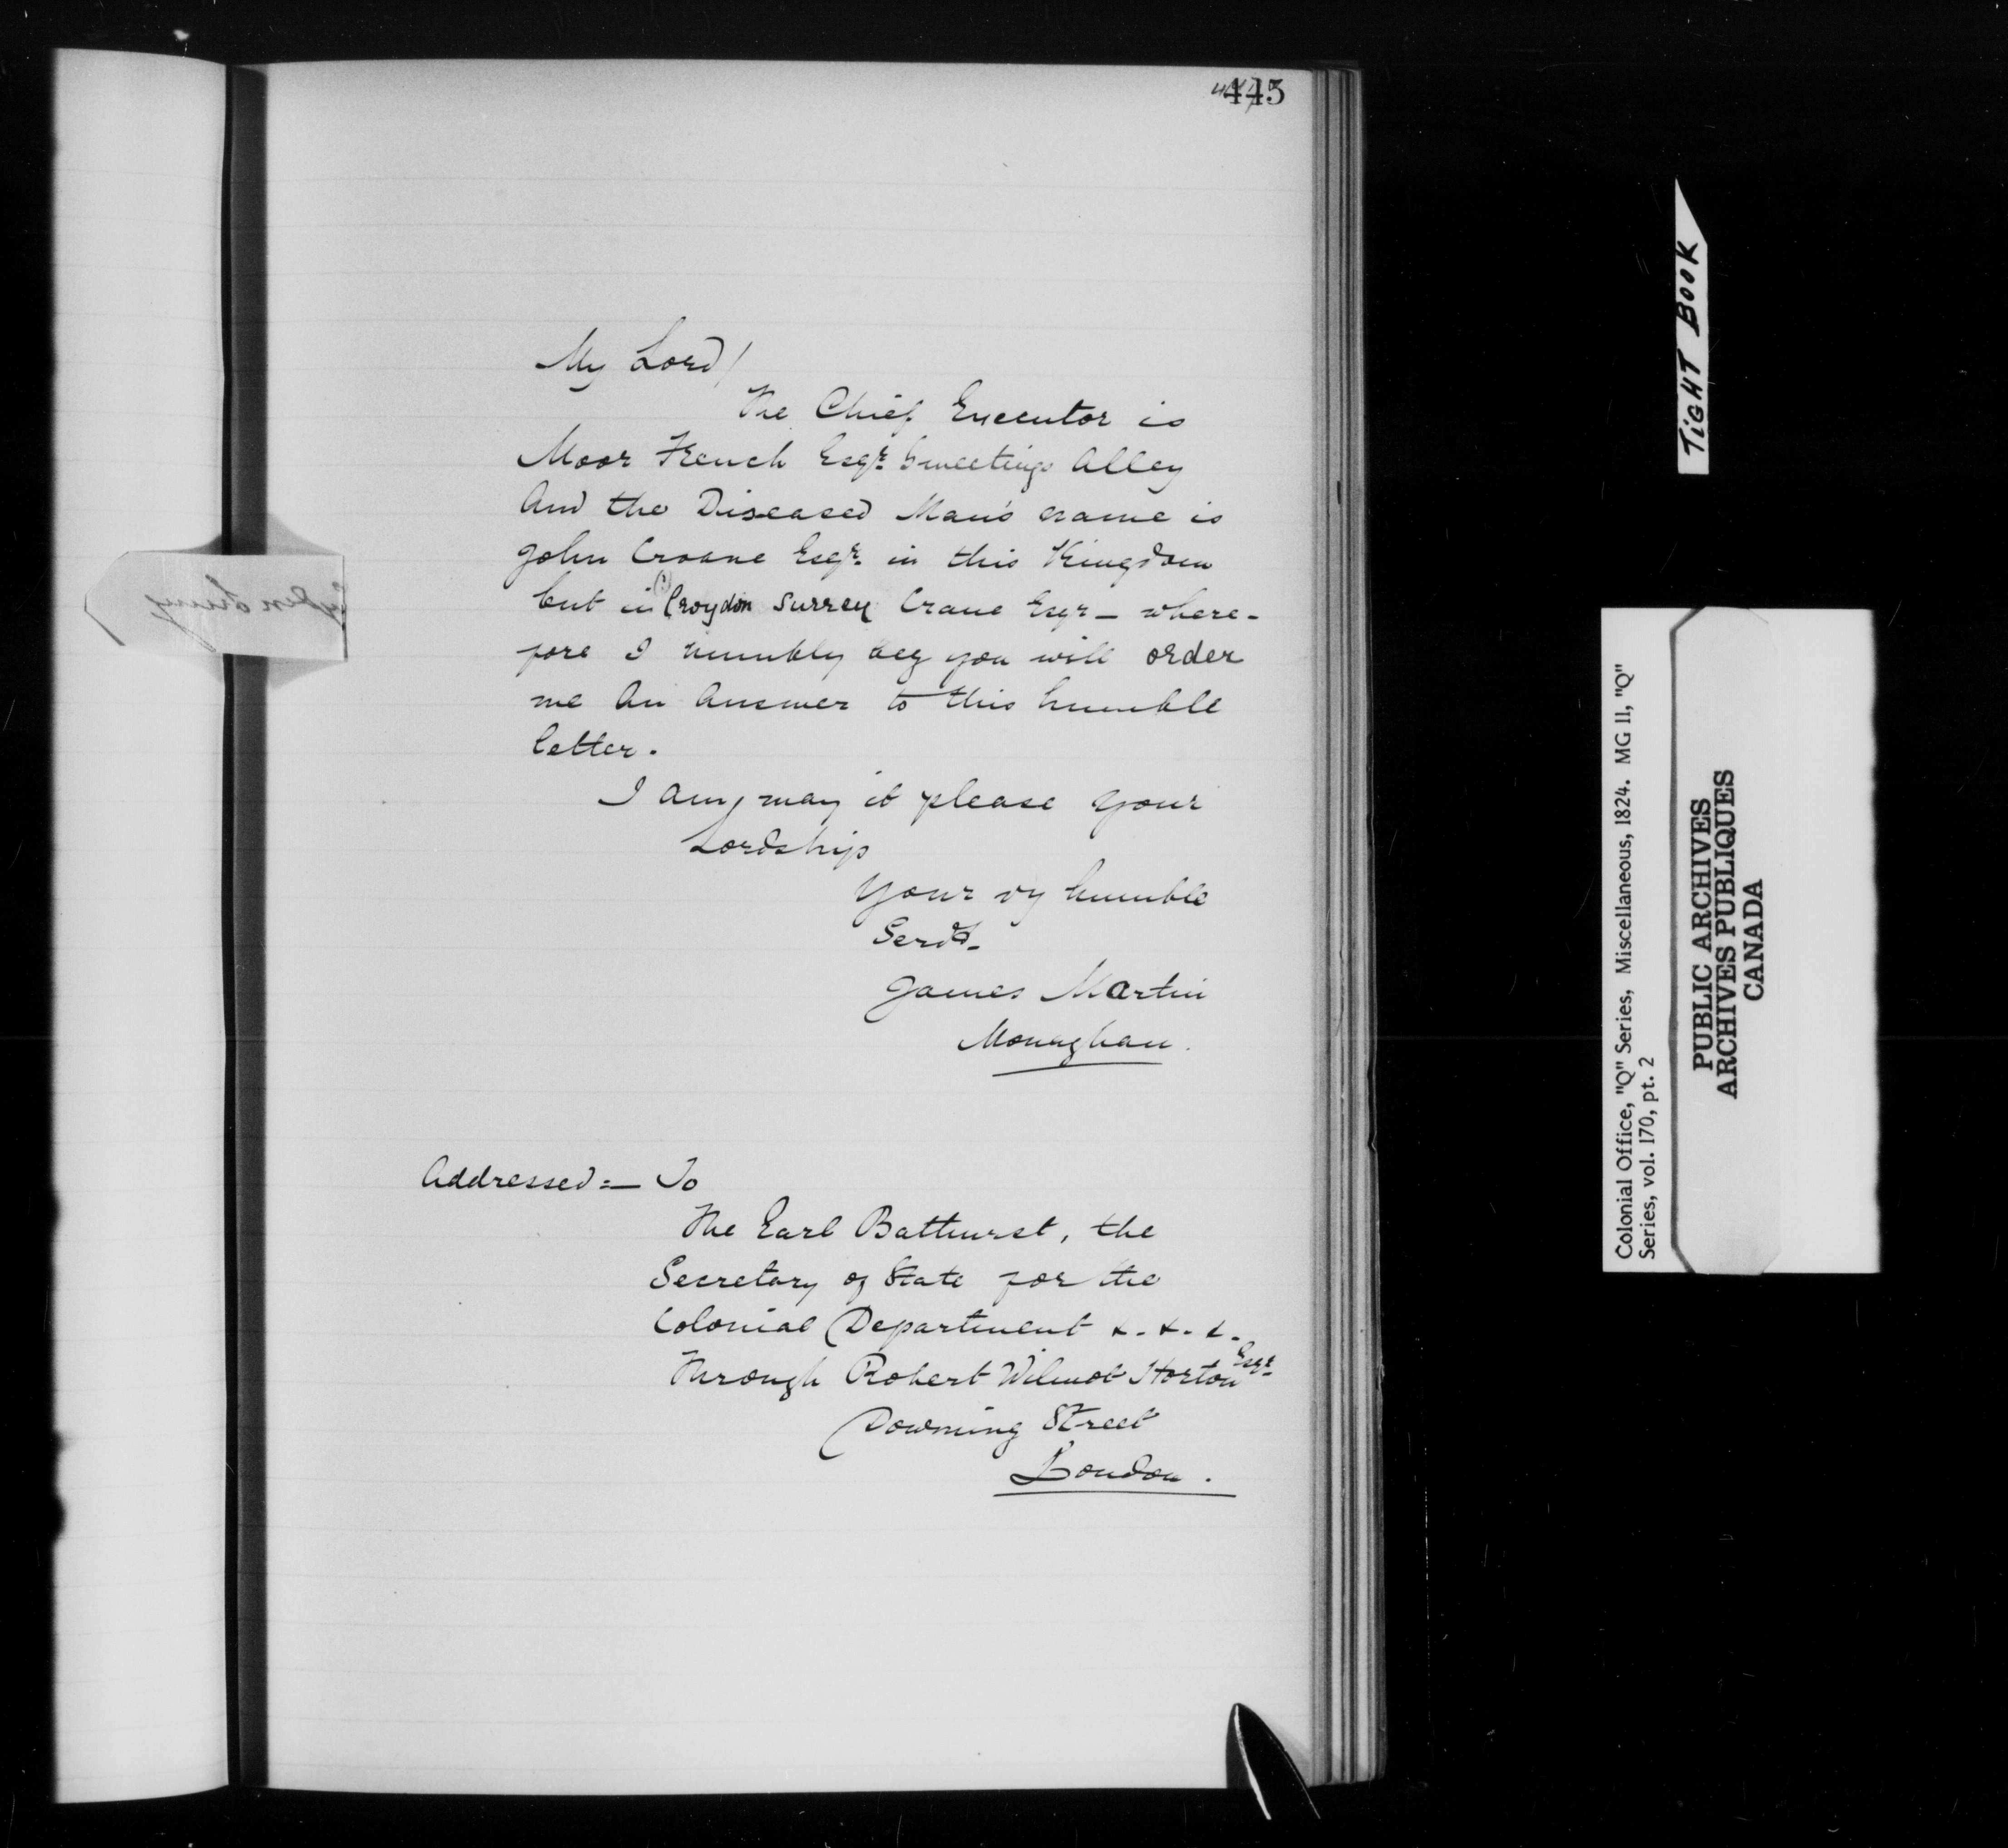 445
My Lord/
The Chief Executor is
Moor French Esqr. Sweetings Alley
And the Diseased Man's name is
John Croane Esqr. in this Kingdom
but in (?) Croydon Surrey Crane Esqr - where-
fore I humbly beg you will order
me An Answer to this humble
letter.
I am, may it please your
Lordship
Your vy humble
Servt.
James Martin
Monaghan.
Addressed:- To
The Earl Bathurst, the
Secretary of State for the
Colonial Department &. &. &.
Through Robert Wilmot Horton Esqr.
Downing Street
London.
TIGHT BOOK
Colonial Office, "Q" Series, Miscellaneous, 1824. MG 11, "Q"
Series, vol. 170, pt. 2
PUBLIC ARCHIVES
ARCHIVES PUBLIQUES
CANADA